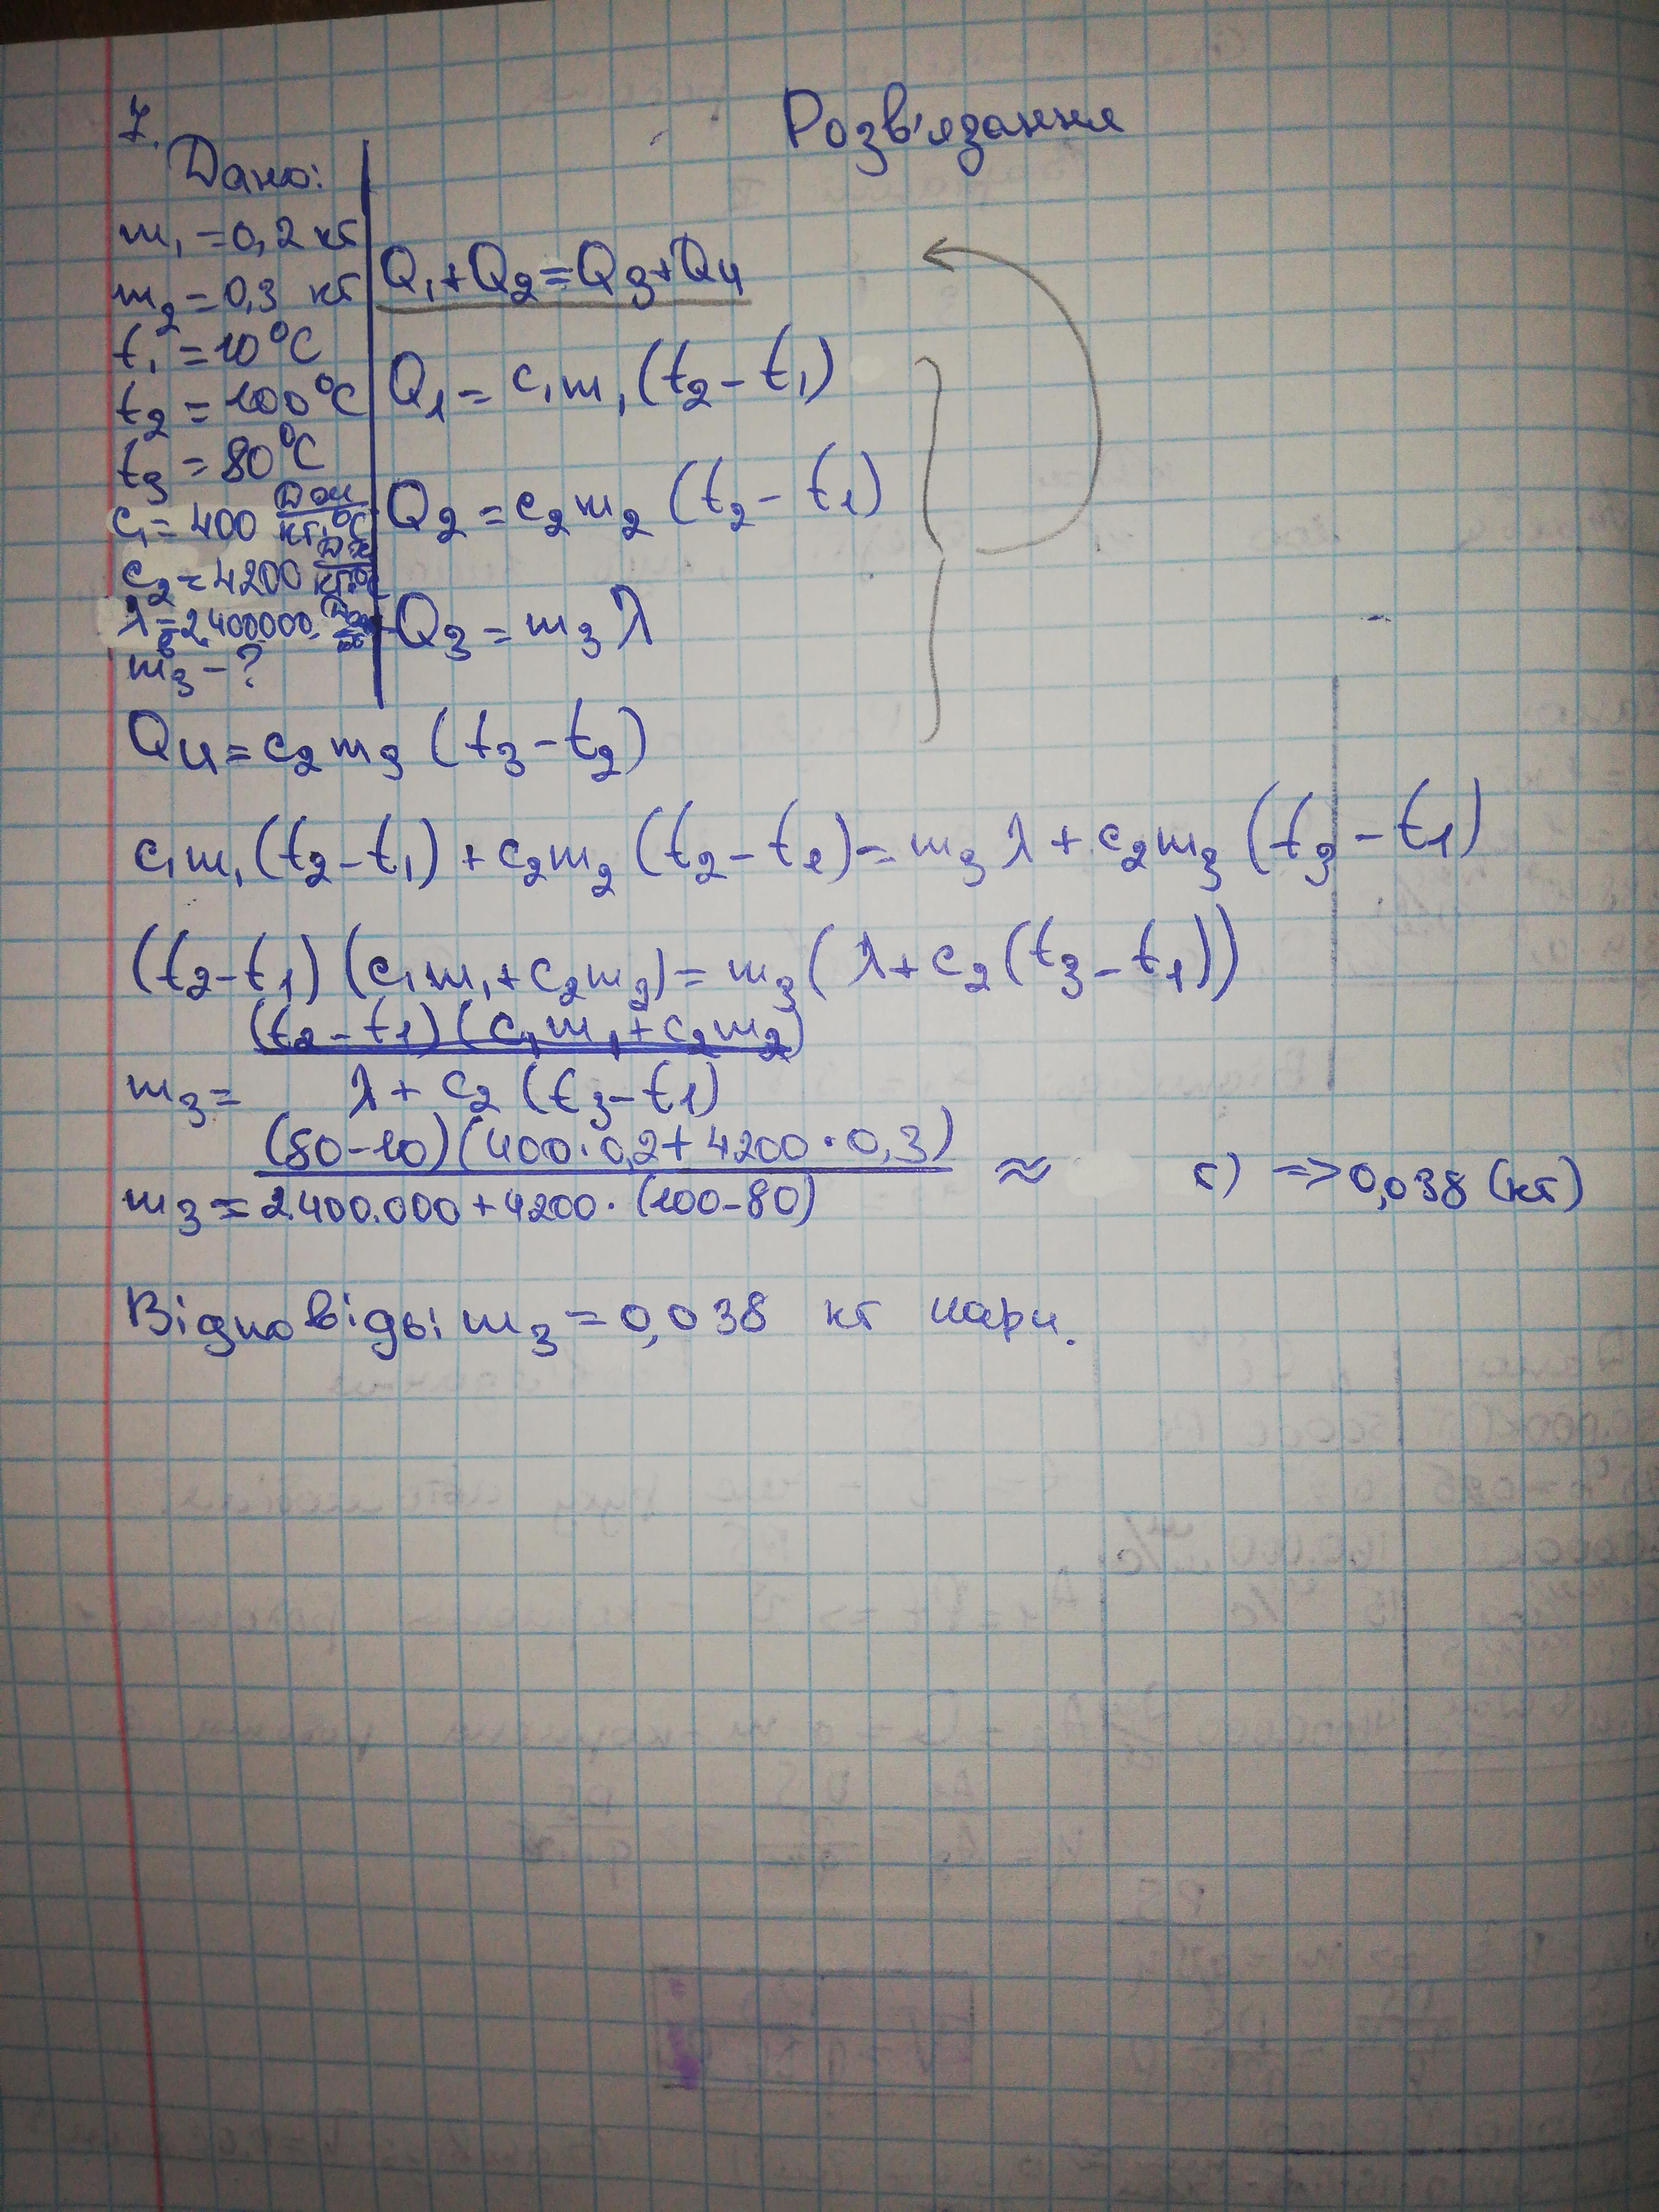 7.
Розв'язання
Дано:
m₁ = 0,2 кг
m₂ = 0,3 кг
t₁ = 10°C
t₂ = 100°C
t₃ = 80°C
c₁ = 400 Дж/кг·°C
c₂ = 4200 Дж/кг·°C
λ = 2400000
m₃ - ?
Q₁ + Q₂ = Q₃ + Q₄
Q₁ = c₁m₁(t₂ - t₁)
Q₂ = c₂m₂(t₂ - t₁)
Q₃ = m₃λ
Q₄ = c₂m₃(t₃ - t₂)
c₁m₁(t₂ - t₁) + c₂m₂(t₂ - t₂) = m₃λ + c₂m₃(t₃ - t₁)
(t₂ - t₁)(c₁m₁ + c₂m₂) = m₃(λ + c₂(t₃ - t₁))
m₃ = (t₂ - t₁)(c₁m₁ + c₂m₂) / λ + c₂(t₃ - t₁)
m₃ = (80 - 10)(400·0,2 + 4200·0,3) / 2.400.000 + 4200·(100 - 80) ≈ г) => 0,038 (кг)
Відповідь: m₃ = 0,038 кг пари.